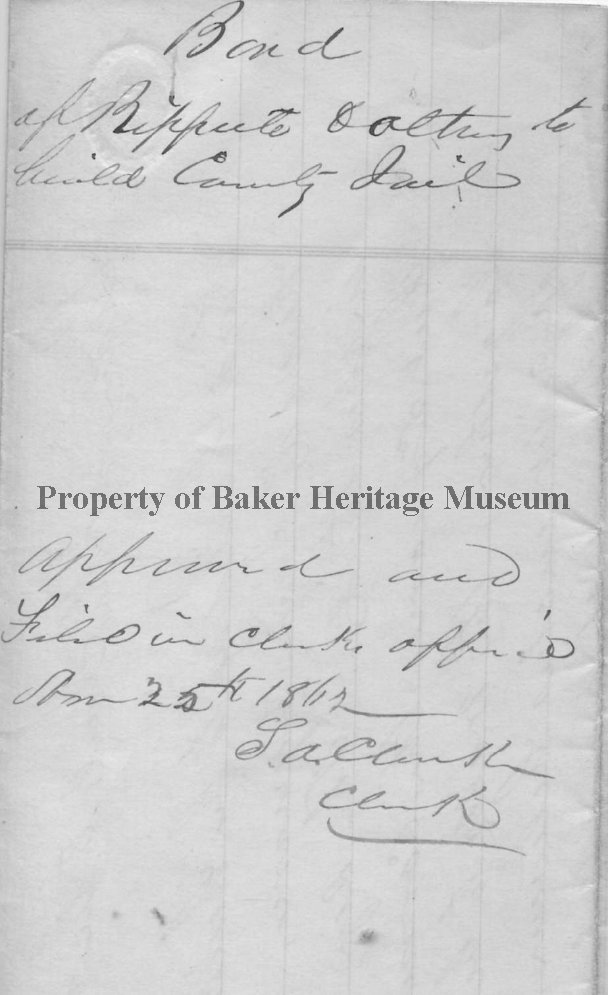 Bond
of Rippeto Doltry to
build County Jail
Property of Baker Heritage Museum
Approved and
Filed in Clerks office
25th 1862
S. A. Clarke
Clerk